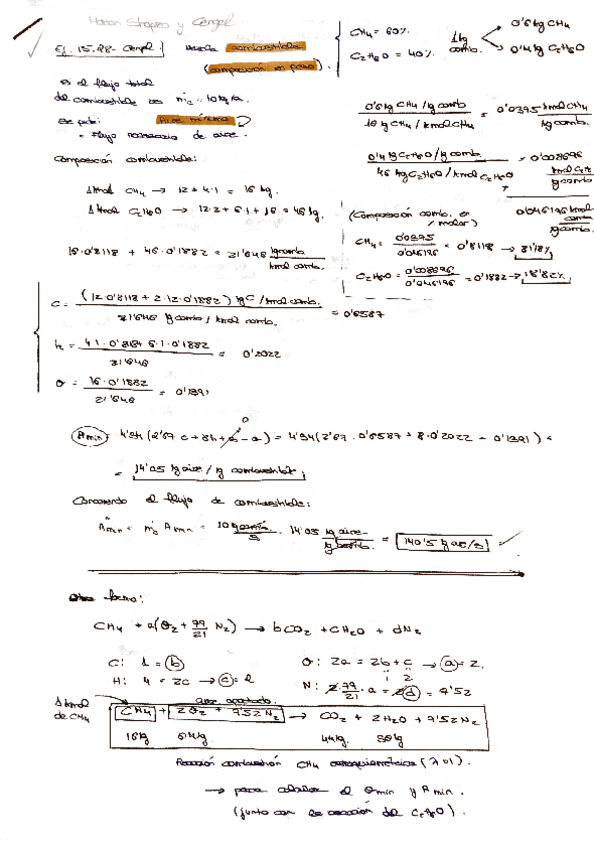 Moran Shapiro y Cengel
Ej. 15.28- Cengel Mezcla combustible
(composición en peso).
CH4 = 60%
C2H6O = 40%
1kg comb.
0'6 kg CH4
0'4 kg C2H6O
es el flujo total
del combustible es m°c = 10kg/s.
se pide: Aire mínimo
= Flujo necesario de aire.
0'6 kg CH4 / kg comb
16 kg CH4 / kmol CH4
= 0'0375 kmol CH4
kg comb.
0'4 kg C2H6O / kg comb.
46 kg C2H6O / kmol C2H6O
= 0'008696
kg comb
+
0'046196 kmol comb
kg comb.
Composición combustible:
1kmol CH4 → 12+4·1 = 16 kg.
1kmol C2H6O → 12·2 + 6·1 + 16 = 46 kg.
(Composición comb. en
molar)
CH4 = 0'0375 / 0'046196 = 0'8118 → 81'18%
C2H6O = 0'008696 / 0'046196 = 0'1882 → 18'82%
16·0'8118 + 46·0'1882 = 21'646 kg comb / kmol comb.
c = (12·0'8118 + 2·12·0'1882) kg C / kmol comb. / 21'646 kg comb / kmol comb. = 0'6587
h = / 21'646 = 0'2022
o = 16·0'1882 / 21'646 = 0'1391
Amin = 4'34 (2'67 c + 8h + s - o) = 4'34 (2'67 · 0'6587 + 8·0'2022 - 0'1391) =
0
= 14'05 kg aire / kg combustible
Conociendo el flujo de combustible:
= 10 kg comb / s · 14'05 kg aire / kg comb. = 140'5 kg aire/s
Otra forma:
CH4 + a(O2 + 79/21 N2) → bCO2 + cH2O + dN2
C: 1 = b
O: 2a = 2b + c → a = 2.
1 2
H: 4 = 2c → c = 2
N: 2·79/21 · a = 2d = 7'52
aire aportado
1 kmol
de CH4
CH4 + 2O2 + 7'52 N2 → CO2 + 2H2O + 7'52 N2
16kg 64kg 44kg. 36kg
Reacción combustión CH4 estequiométrica (λ=1).
→ para calcular el Omin y Amin.
(junto con la reacción del C2H6O).